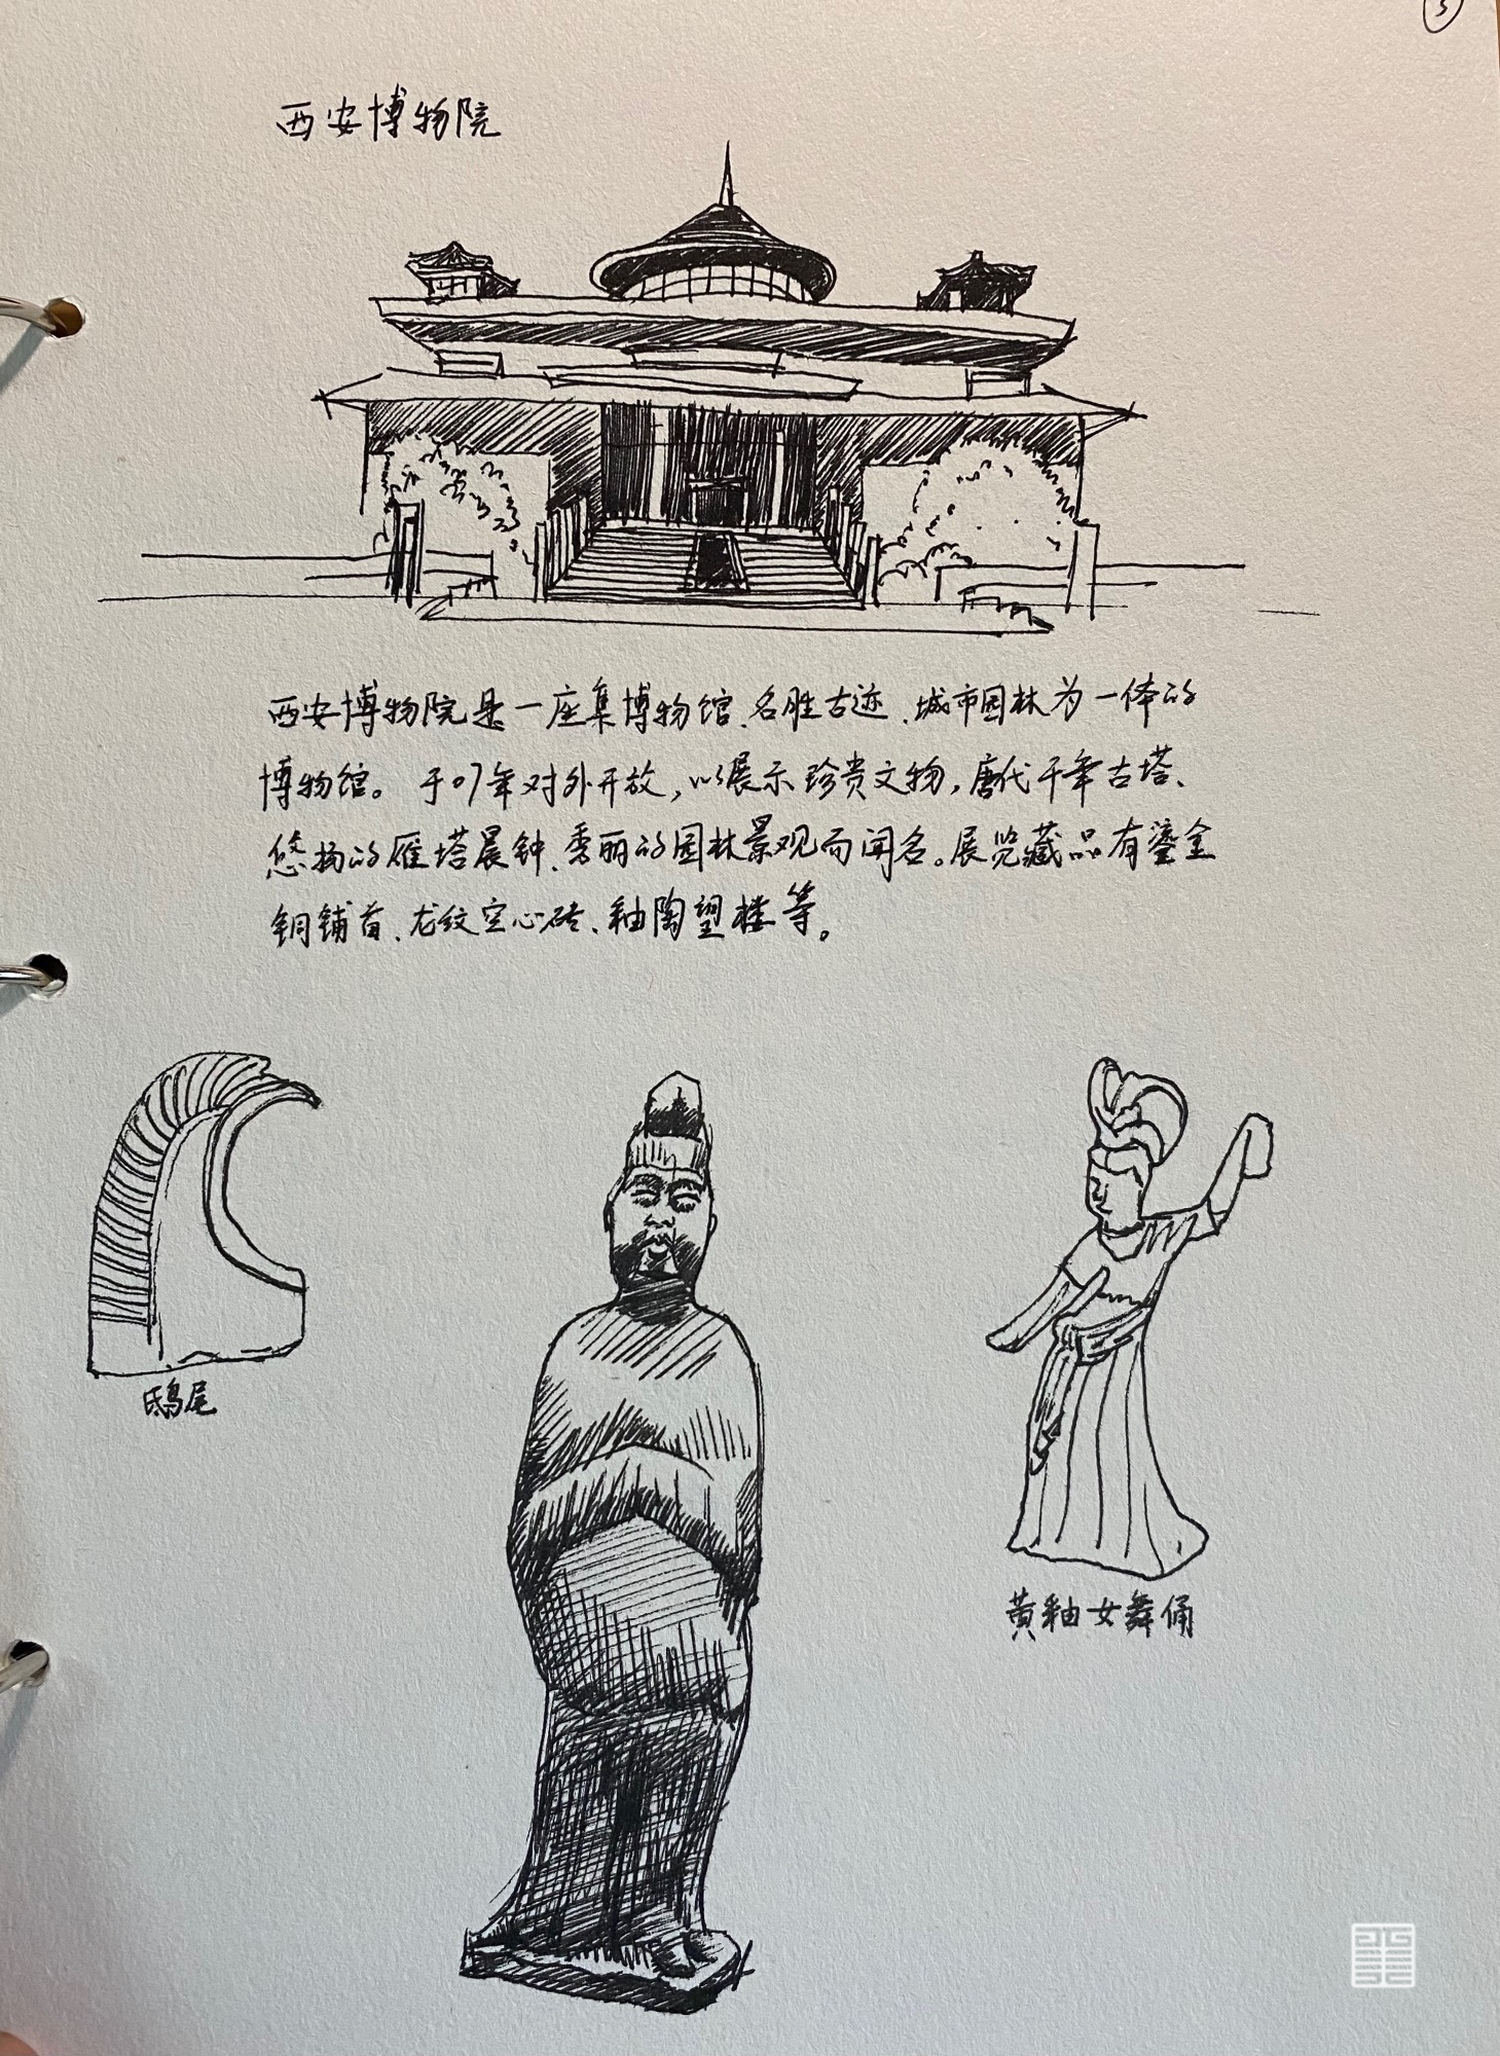 5
西安博物院
西安博物院是一座集博物馆、名胜古迹、城市园林为一体的
博物馆。于07年对外开放，以展示珍贵文物，唐代千年古塔、
悠扬的雁塔晨钟、秀丽的园林景观而闻名。展览藏品有鎏金
铜铺首、龙纹空心砖、釉陶望楼等。
鸱尾
黄釉女舞俑